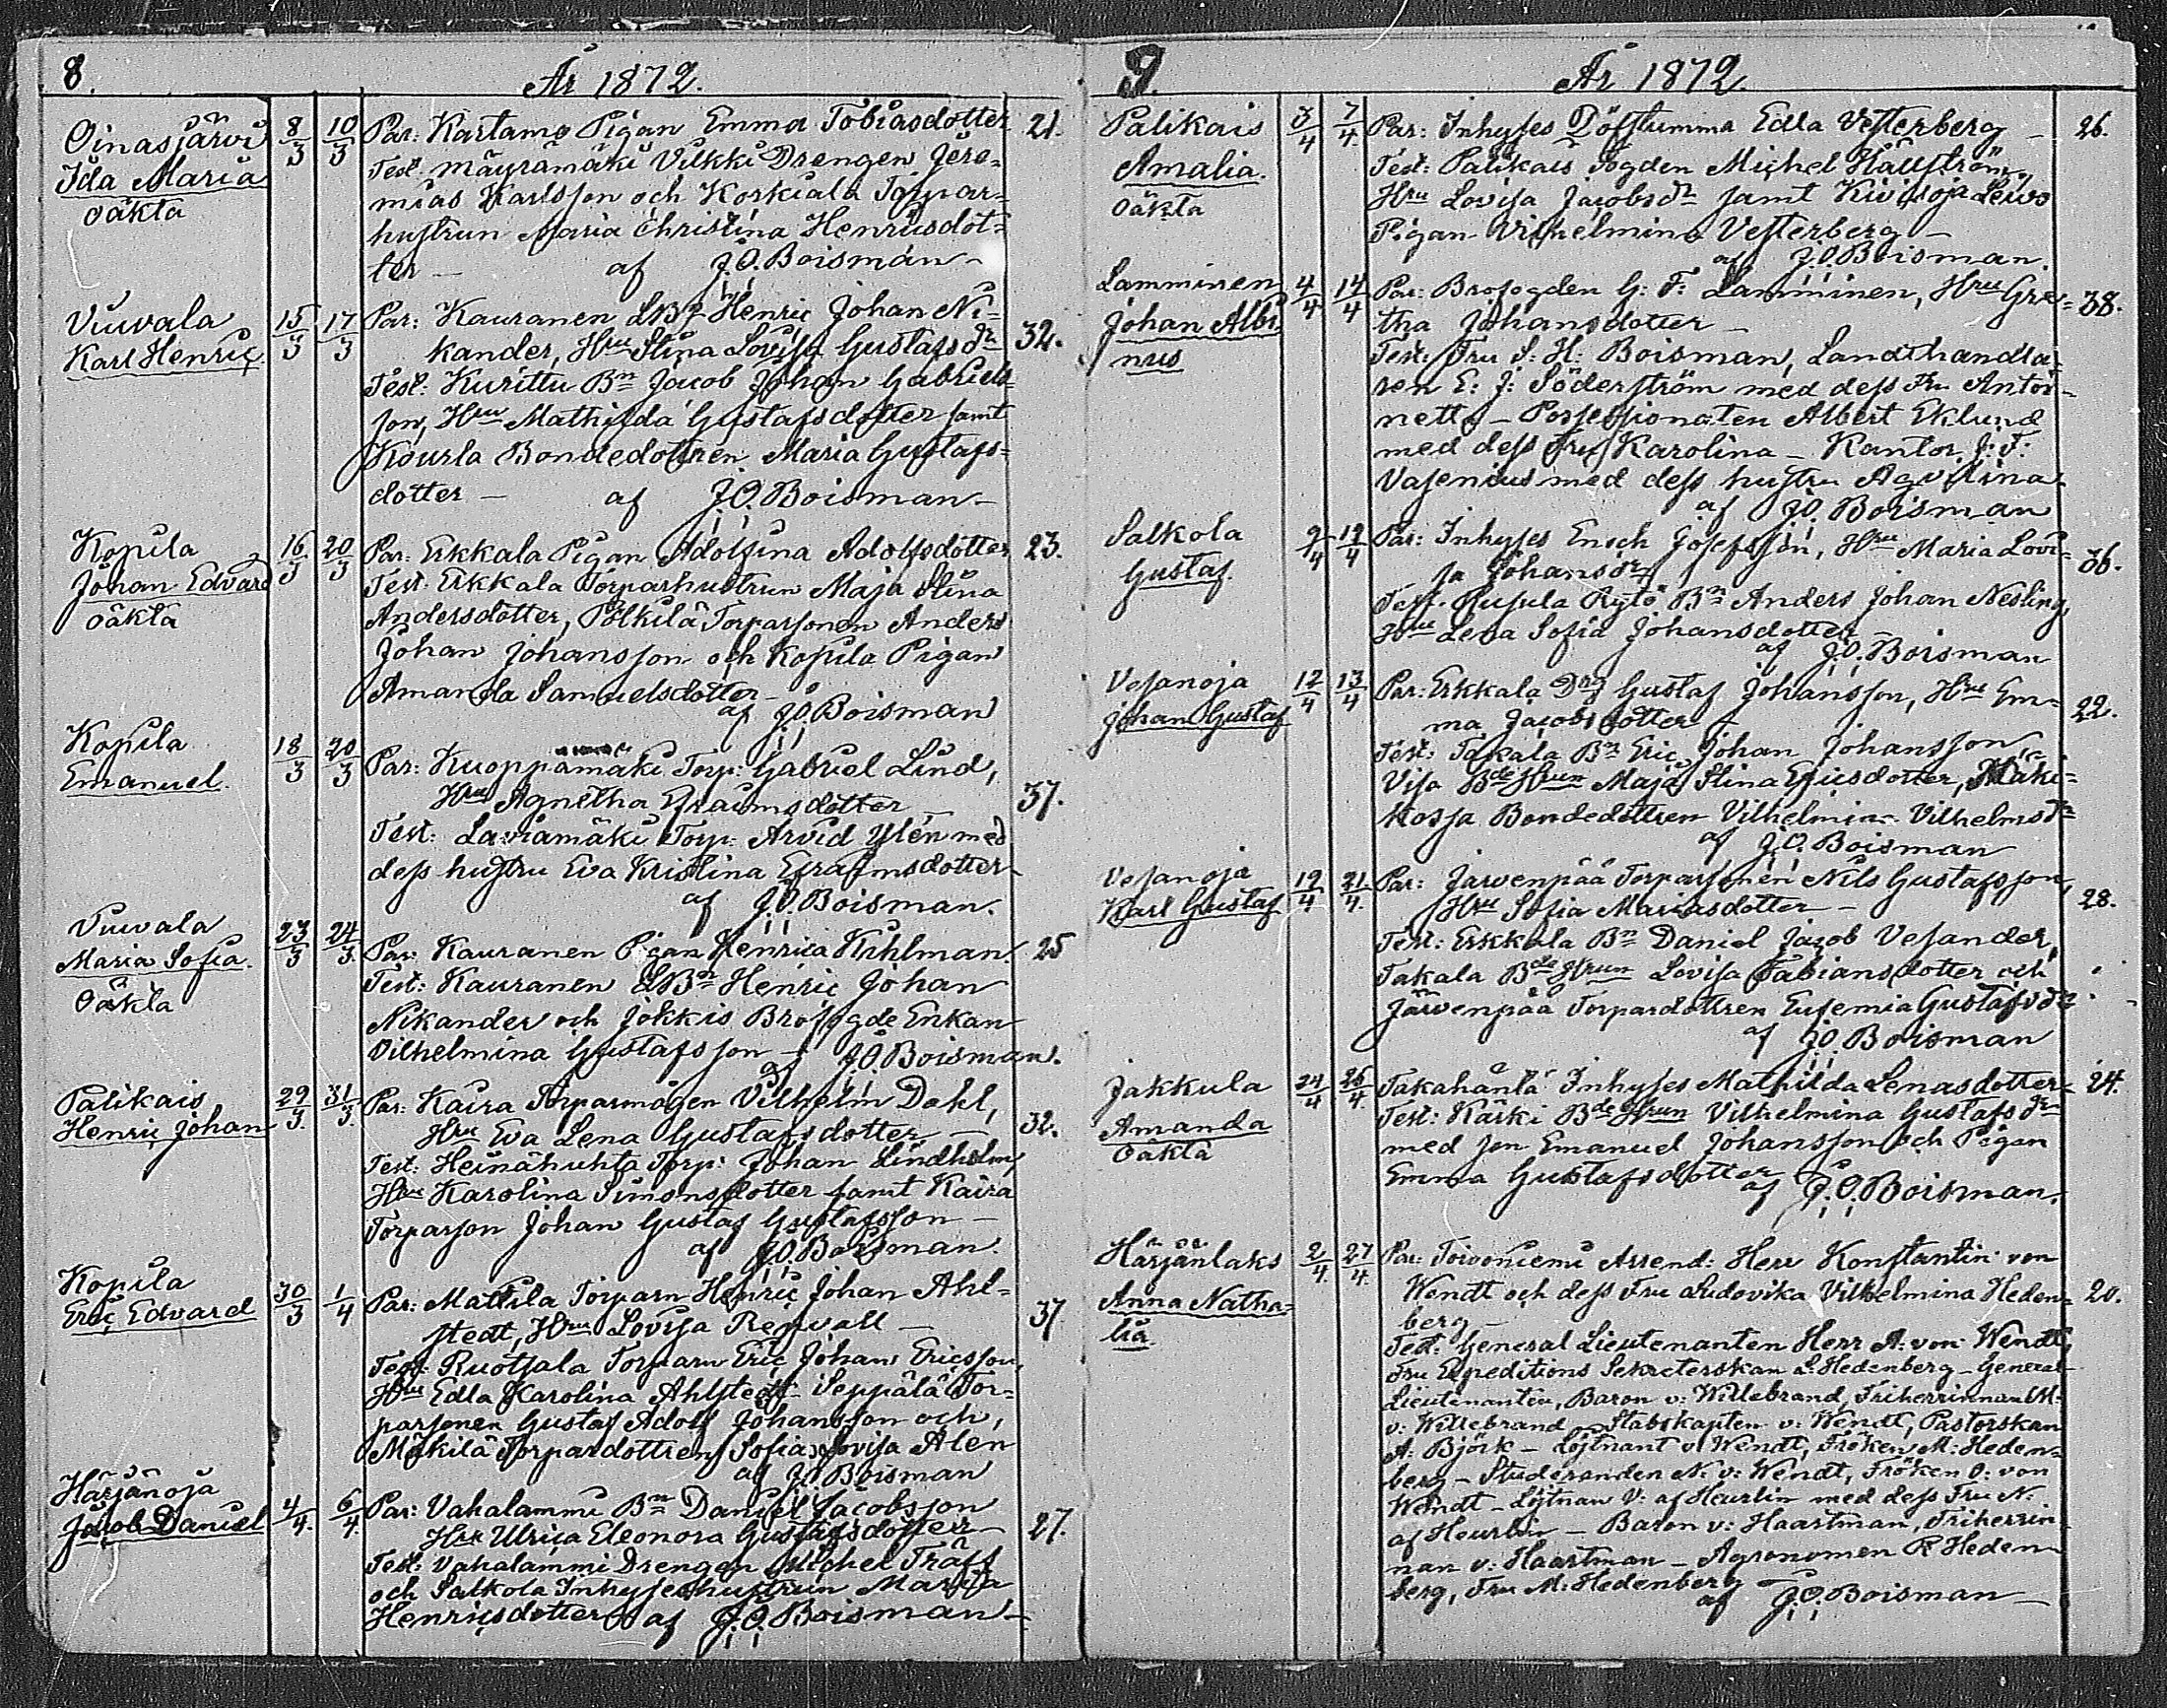 8.
År 1872.
Oinasjärvi 8/3 10/3 Par: Kartamo Pigan Emma Tobiasdotter 21.
Ida Maria Test: Mäyrämäki Vilkki Drengen Jere-
oäkta mias Karlsson och Korkiala Torpar-
hustrun Maria Christina Henricsdot-
ter — af J.O. Boisman —
Viuvala 15/3 17/3 Par: Kauranen LBn Henric Johan Ni-
Karl Henric kander, Hru Stina Lovisa Gustafsdr 32.
Test: Kurittu Bn Jacob Johan Gabriels-
son, Hru Mathilda Gustafsdotter samt
Kourla Bondedottren Maria Gustafs-
dotter — af J.O. Boisman —
Kopila 16/3 20/3 Par: Erkkala Pigan Adolfina Adolfsdotter 23.
Johan Edvard Test: Erkkala Torparhustrun Maja Stina
oäkta Andersdotter, Pölkilä Torparsonen Anders
Johan Johansson och Kopila Pigan
Amanda Samuelsdotter —
af J.O. Boisman
Kopila 18/3 20/3 Par: Kuoppamäki Torp: Gabriel Lind,
Emanuel. Hru Agnetha Efraimsdotter — 37.
Test: Laviamäki Torp: Arvid Ylén med
dess hustru Eva Kristina Efraimsdotter —
af J.O. Boisman.
Viuvala 23/3 24/3 Par: Kauranen Pigan Henrica Kihlman 25
Maria Sofia. Test: Kauranen LBn Henric Johan
Oäkta Nikander och Jokkis Brofogde Enkan
Vilhelmina Gustafsson — af J.O. Boisman.
Palikais 29/3 31/3 Par: Kaira Torparmågen Vilhelm Dahl,
Henric Johan Hru Eva Lena Gustafsdotter — 32.
Test: Heinähuhta Torp: Johan Lindholm,
Hru Karolina Simonsdotter samt Kaira
Torparson Johan Gustaf Gustafsson —
af J.O. Boisman.
Kopila 30/3 1/4 Par: Mattila Torparn Henric Johan Ahl-
Eric Edvard stedt, Hru Lovisa Renvall — 37.
Test: Ruotsala Torparn Eric Johan Ericsson,
Hru Edla Karolina Ahlstedt — Seppälä Tor-
parsonen Gustaf Adolf Johansson och
Mäkilä Torpardottren Sofia Lovisa Alen
af J.O. Boisman
Härjänoja 4/4 6/4 Par: Vahalammi Bn Daniel Jacobsson
Jacob Daniel Hru Ulrica Eleonora Gustafsdotter — 27.
Test: Vahalammi Drengen Michel Träff
och Salkola Inhyseshustrun Maria
Henricsdotter af J.O. Boisman —
9.
År 1872.
Palikais 3/4 7/4 Par: Inhyses Döfstumma Edla Vesterberg — 26.
Amalia. Test: Palikais Fogden Michel Hällström,
oäkta Hru Lovisa Jacobsdr samt Kivisoja Leivo
Pigan Vilhelmina Vesterberg —
af J.O. Boisman.
Lamminen 4/4 14/4 Par: Brofogden G: F: Lamminen, Hru Gre- 38.
Johan Albi- tha Johansdotter —
nus Test: Fru S: H: Boisman, Landthandla-
ren E: J: Söderström med dess Fru Antoi-
nette — Possessionaten Albert Eklund
med dess Fru Karolina — Kantor J: F:
Vasenius med dess hustru Agvilina.
af J.O. Boisman
Salkola 9/4 12/4 Par: Inhyses Enoch Josefsson, Hru Maria Lovi-
Gustaf. sa Johansdr 36.
Test: Rusula Rytö Bn Anders Johan Nesling,
Hru Lena Sofia Johansdotter —
af J.O. Boisman
Vesanoja 12/4 13/4 Par: Erkkala Drg Gustaf Johansson, Hru Em-
Johan Gustaf ma Jacobsdotter — 22.
Test: Takala Bn Eric Johan Johansson
Visa Bde Hrun Maja Stina Ericsdotter, Mäki-
Bondedottren Vilhelmina Vilhelmsdr
af J.O. Boisman
Vesanoja 19/4 21/4 Par: Järvenpää Torparsonen Nils Gustafsson,
Karl Gustaf Hru Sofia Mariasdotter — 28.
Test: Erkkala Bn Daniel Jacob Vesander,
Takala Bde Hrun Lovisa Fabiansdotter och
Järvenpää Torpardottren Eufemia Gustafsdr
af J.O. Boisman
Jakkula 24/4 26/4 Takahänta Inhyses Mathilda Lenasdotter — 24.
Amanda Test: Kärki Bde Hrun Vilhelmina Gustafsdr
oäkta med son Emanuel Johansson och Pigan
Emma Gustafsdotter af J.O. Boisman.
Härjänlaks 2/4 27/4 Par: Toivoniemi Arrend: Herr Konstantin von
Anna Natha- Wendt och dess Fru Ludovika Vilhelmina Heden- 20.
lia berg —
Test: General Lieutenanten Herr A: von Wendt,
Fru Expeditions Sekreterskan L: Hedenberg — General
Lieutenanten, Baron v: Willebrand, Friherrinnan M:
v: Willebrand — Stabskapten v: Wendt, Pastorskan
A: Björk — Löjtnant v: Wendt, Fröken M: Heden-
berg — Studeranden N: v: Wendt, Fröken O: von
Wendt — Löjtnan V: af Heurlin med dess Fru N:
af Heurlin — Baron v: Haartman, Friherrin-
nan v: Haartman — Agronomen R Heden-
berg, Fru M: Hedenberg —
af J.O. Boisman —